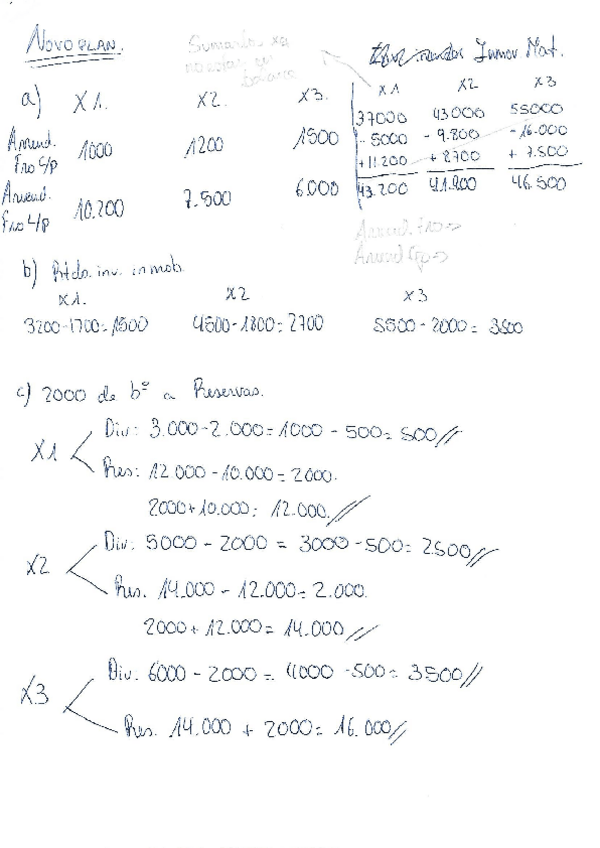 NOVOPLAN.
Inmov Mat.
a) X1. X2. X3.
X1 X2 X3
37000 43000 55000
Arrend. Fro C/p 1000 1200 1500
- 5000 - 9.800 - 16.000
+ 11.200 + 8700 + 7.500
Arrend. Fro L/p 10.200 7.500 6.000
43.200 41.900 46.500
Arrend. Fro =>
b) Rtdo. inv. inmob.
X1. X2 X3
3200-1700=1500 4500-1800=2700 5500-2000=3500
c) 2000 de bº a Reservas.
X1
Div: 3.000-2.000=1000 - 500= 500//
Res: 12.000-10.000=2000.
2000+10.000= 12.000.//
X2
Div: 5000 - 2000 = 3000-500= 2500//
Res. 14.000 - 12.000= 2.000.
2000 + 12.000= 14.000//
X3
Div: 6000 - 2000 = 4000 -500= 3500//
Res. 14.000 + 2000= 16.000//